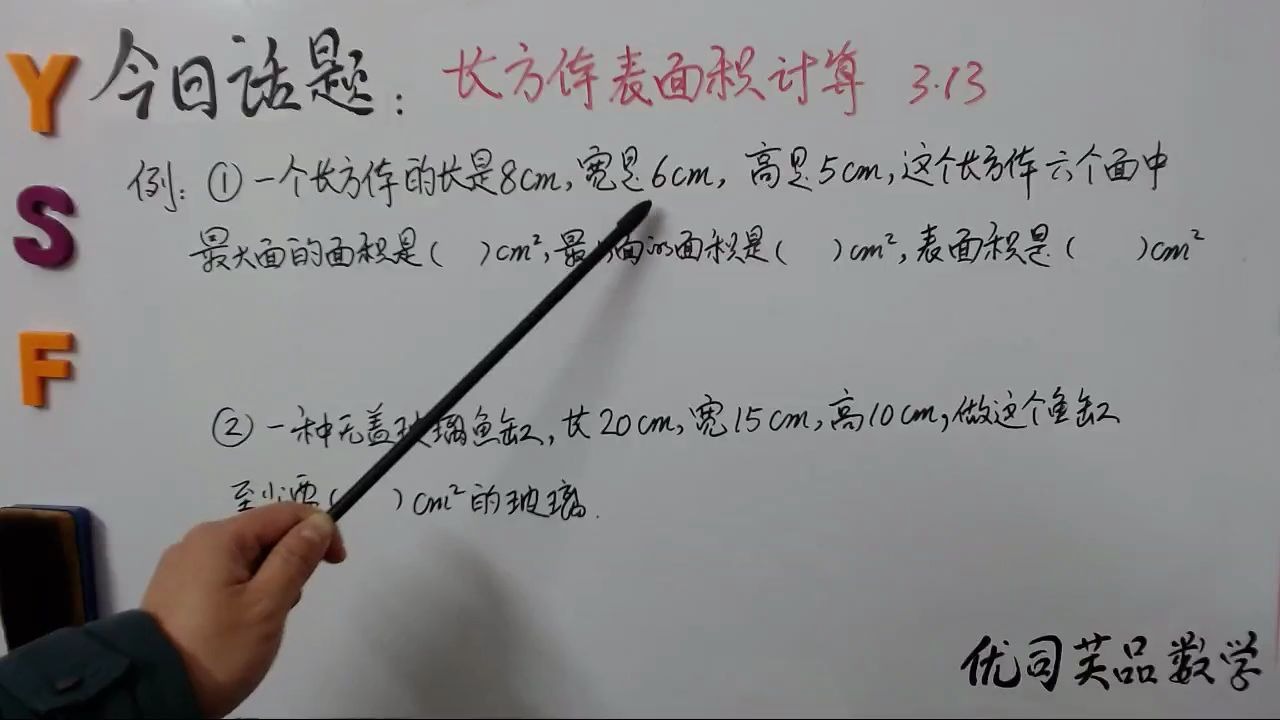 Y
S
F
今日话题: 长方体表面积计算 3.13
例: ①一个长方体的长是8cm,宽是6cm,高是5cm,这个长方体六个面中
最大面的面积是( )cm²,最 面的面积是( )cm²,表面积是( )cm²
②一种无盖玻璃鱼缸,长20cm,宽15cm,高10cm,做这个鱼缸
至少要( )cm²的玻璃.
优司芙品数学